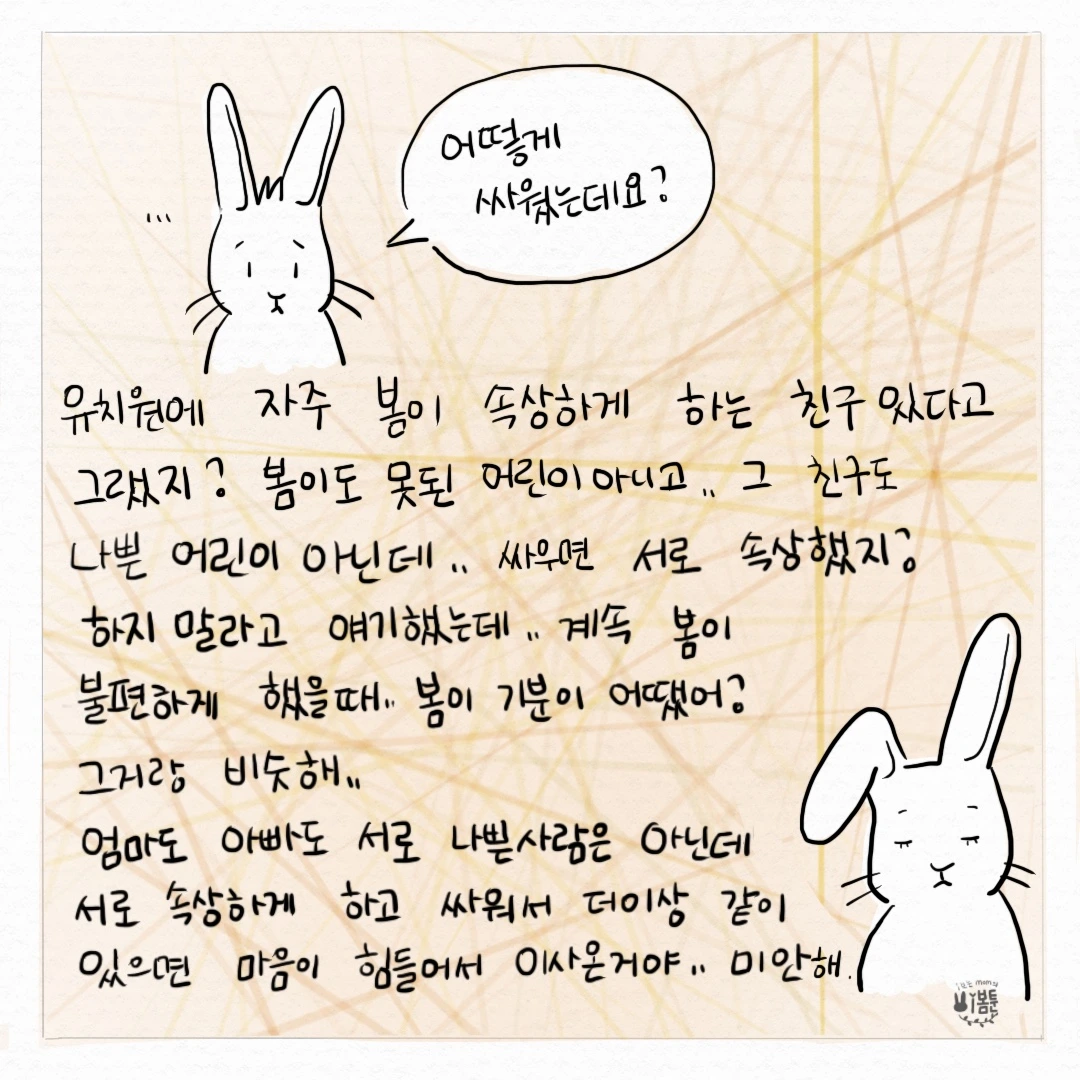 어떻게
싸웠는데요?
...
유치원에 자주 봄이 속상하게 하는 친구 있다고
그랬지? 봄이도 못된 어린이 아니고.. 그 친구도
나쁜 어린이 아닌데.. 싸우면 서로 속상했지?
하지 말라고 얘기했는데.. 계속 봄이
불편하게 했을때.. 봄이 기분이 어땠어?
그거랑 비슷해..
엄마도 아빠도 서로 나쁜사람은 아닌데
서로 속상하게 하고 싸워서 더이상 같이
있으면 마음이 힘들어서 이사온거야.. 미안해.
봄툰